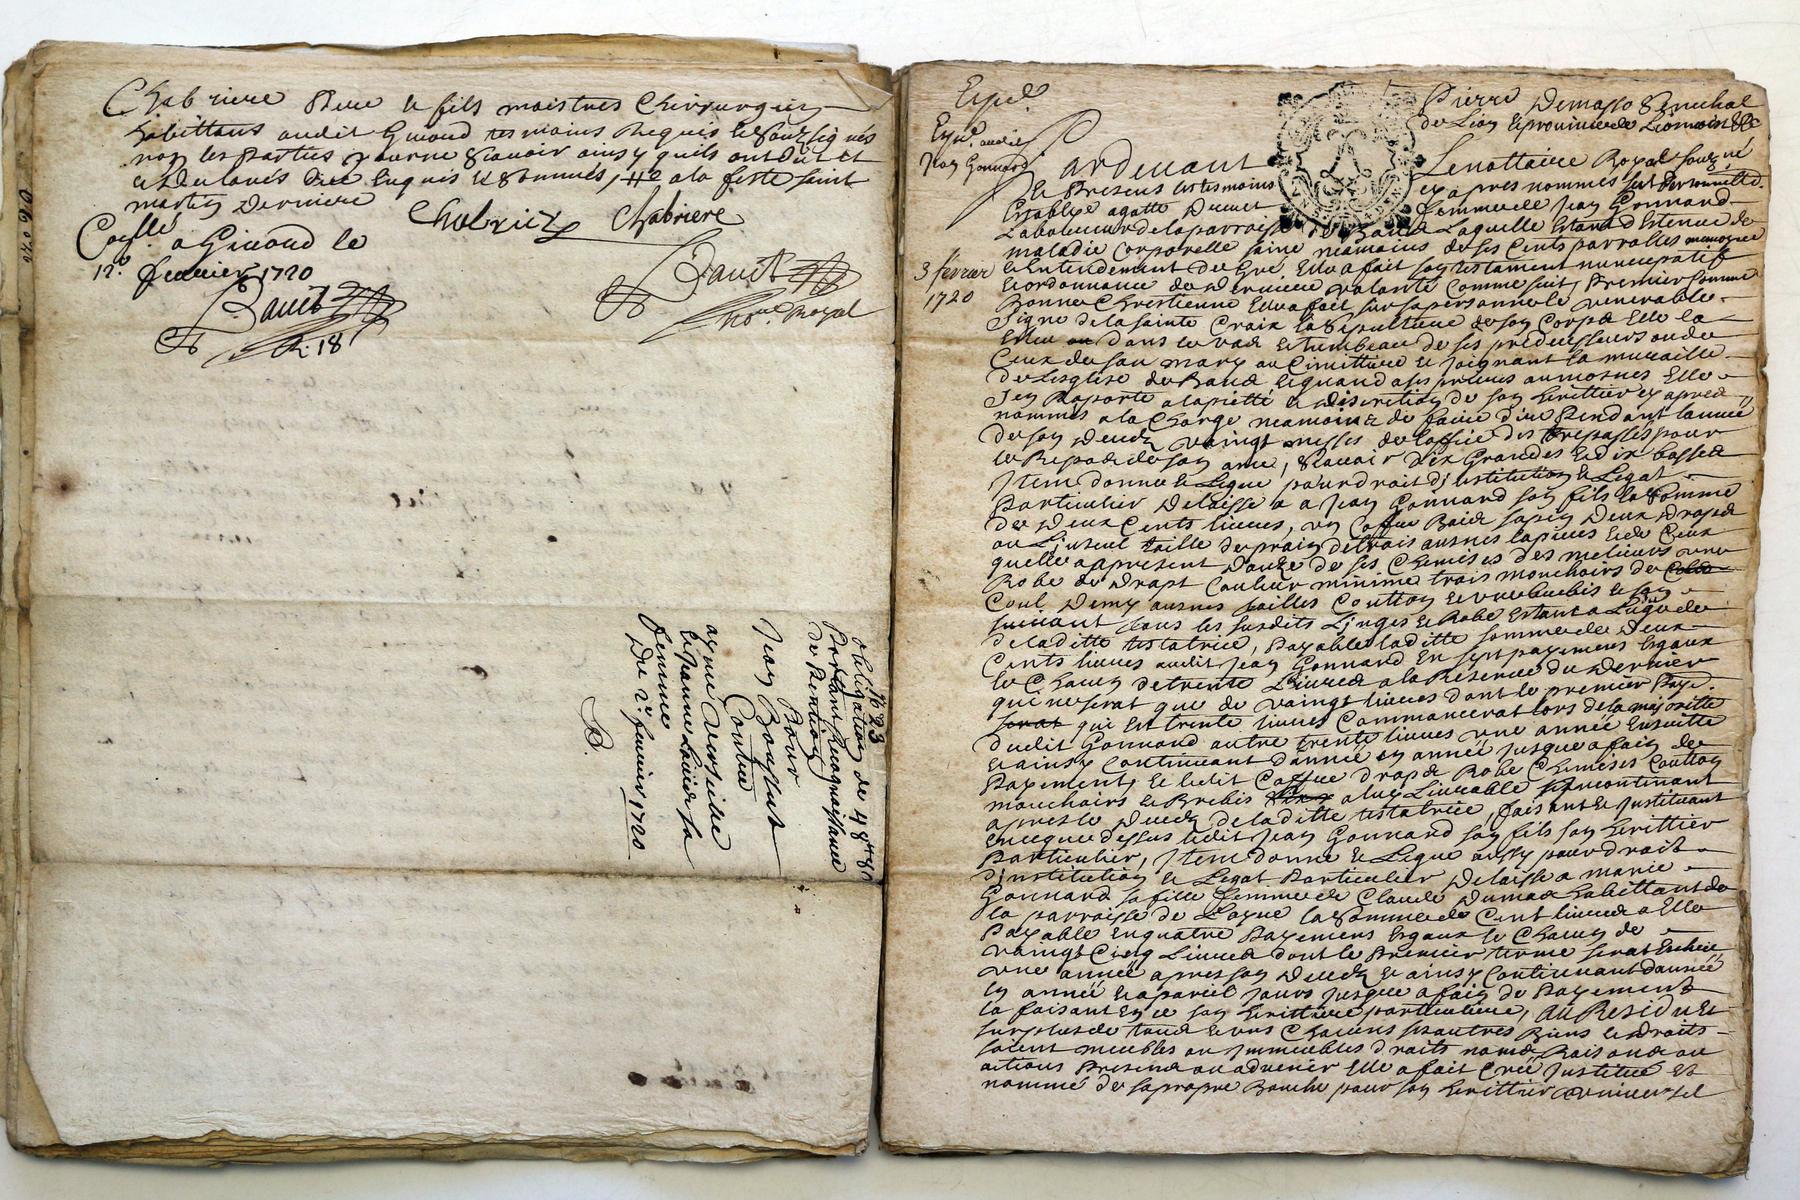 Chabriere Pere et fils maistres Chirurgiens
habittans audit Givord tesmoins Requis et soussignés
non les parties pour ne scavoir ainsy quils ont dit et
declarés de ce Enquis et sommés, a la feste saint
martin Derniere
Chabriere Chabriere
Collé
a Givord le
12e feuvrier 1720
Dauit
Dauit
Nore Royal
R. 18
No 23
obligation de 48 8s
Portant Recognoissance
de Pention
Pour
Jean
Contre
ayme
Estienne sa
femme
Du 2e feuvrier 1720
B.
Expé
Expé audit
Jean Gonnard
3 février
1720
Pierre Demasso Senechal
de Lion et province de Lionnois &c
Pardevant Le nottaire Royal soussigné
et Presens les tesmoins cy apres nommés fut Personnelle.
Establye agatte femme de Jean Gonnard
Laboureur de la parroisse de Laquelle Estand detenue de
maladie corporelle saine neamoins de ses Cents parrolles memoyre
et Entendement de Gré, Elle a fait son testament nuncupatif
et ordonnance de derniere volonté comme suit, Premier comme
Bonne Chrestienne Elle a fait sur sa personne le venerable
signe de la sainte Croix la sepulture de son Corps Elle la
Esleu dans le vas et tumbeau de ses predecesseurs ou de
Ceux de son mary au Cimittiere et joignant la muraille
de Lesglise de et quand a ses prieres aumosnes Elle
s'en Raporte a la pietté et discretion de son herittier cy apres
nommés a la Charge neamoins de faire dire Pendant lannée
de son Decés vaingt messes de Loffice des trepassés pour
le Repos de son ame, scavoir dix Grandes et dix basses
Item donne et Legue pour droit d'institution et Legat
Particulier Delaisse a Jean Gonnard son fils la somme
de Deux Cents livres, un Coffre Bois sapin Deux Draps
ou Linseul taille de prain de trois ausnes la piece et de Ceux
quelle a appresent Douze de ses Chemises des melieurs une
Robe de Drapt Couleur minime trois mouchoirs de
Coul, Demy ausnes tailles Coutton et une brebis et son
suivant tous les susdits Linges et Robe Estant a Lusage de
de ladite testatrice, Payable ladite somme de Deux
Cents livres audit Jean Gonnard En sept payemens Esgaux
le Chacun de trente Livres a la Reserve du Dernier
qui ne serat que de vaingt livres dont le premier Paye.
qui Est trente livres Commancerat lors de la majorité
dudit Gonnard autre trente livres une année Ensuitte
et ainsy Continuant dannée en année jusque a fain de
Payement, et ledit Coffre draps Robe Chemises Coutton
mouchoirs et Brebis a luy Livrable incontinant
apres le Decés de ladite testatrice, faisant et Instituant
En ce que dessus ledit Jean Gonnard son fils son herittier
Particulier, Item donne et Legue aussy pour droit
d'institution et Legat Particulier Delaisse a marie
Gonnard sa fille femme de Claude Dumas habittant de
la parroisse de la somme de Cent livres a Elle
Payable En quatre Payemens Esgaux le Chacun de
vaingt Cinq Livres dont le Premier terme serat Escheu
une année apres son Decés et ainsy Continuant dannée
En année et a pareil jours jusque a fain de Payement
la faisant En ce son herittiere particuliere, Au Residu Et
surplus de tous et uns Chacuns ses autres Biens et droits
soient meubles ou Immeubles droits noms Raisons ou
actions Presens ou advenir Elle a fait Créé Institué Et
nommé de sa propre Bouche pour son herittier universel